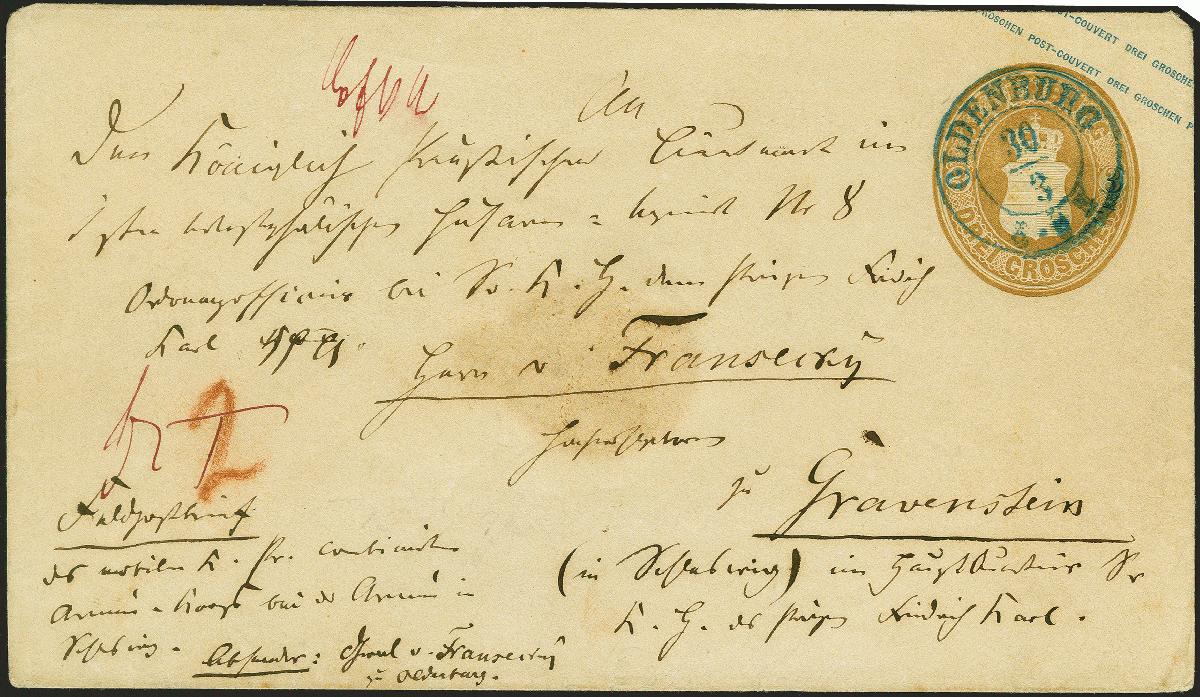 POST-COUVERT DREI GROSCHEN
GROSCHEN POST-COUVERT DREI GROSCHEN P
OLDENBURG
30
3
DREI GROSCHEN
An
Den Königlich Preußischen Lieutenant im
1sten westphälischen Husaren-Regiment Nr 8
Ordonnanzofficier bei Sr. K. H. dem Prinzen Friedrich
Karl
Herrn v Fransecky
Hochwohlgeboren
zu Gravenstein
(in Schleswig) im Hauptquartier Sr
K. H. des Prinzen Friedrich Karl.
2
Feldpostbrief
des mobilen K. Pr. combinirten
Armee-Korps bei der Armee in
Schleswig.
Absender: General v. Fransecky
zu Oldenburg.